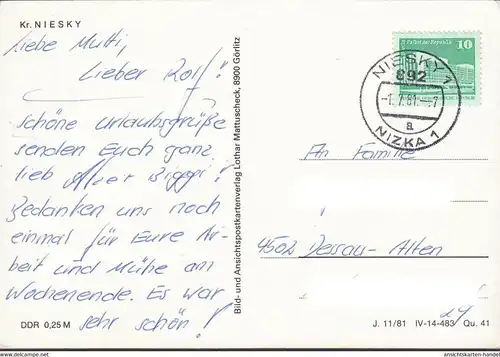 Kr. NIESKY
Liebe Mutti,
Lieber Rolf!
Schöne Urlaubsgrüße
senden Euch ganz
lieb
Bedanken uns noch
einmal für Eure Ar-
beit und Mühe am
Wochenende. Es war
sehr schön!
DDR 0,25 M
Bild- und Ansichtspostkartenverlag Lothar Mattuscheck, 8900 Görlitz
Palast der Republik
10
NIESKY 1
892
-1.7.81.--7
a
NIZKA 1
An Familie
4502 Dessau-Alten
J. 11/81 IV-14-483 Qu. 41
www.ansichtskarten-handel.com